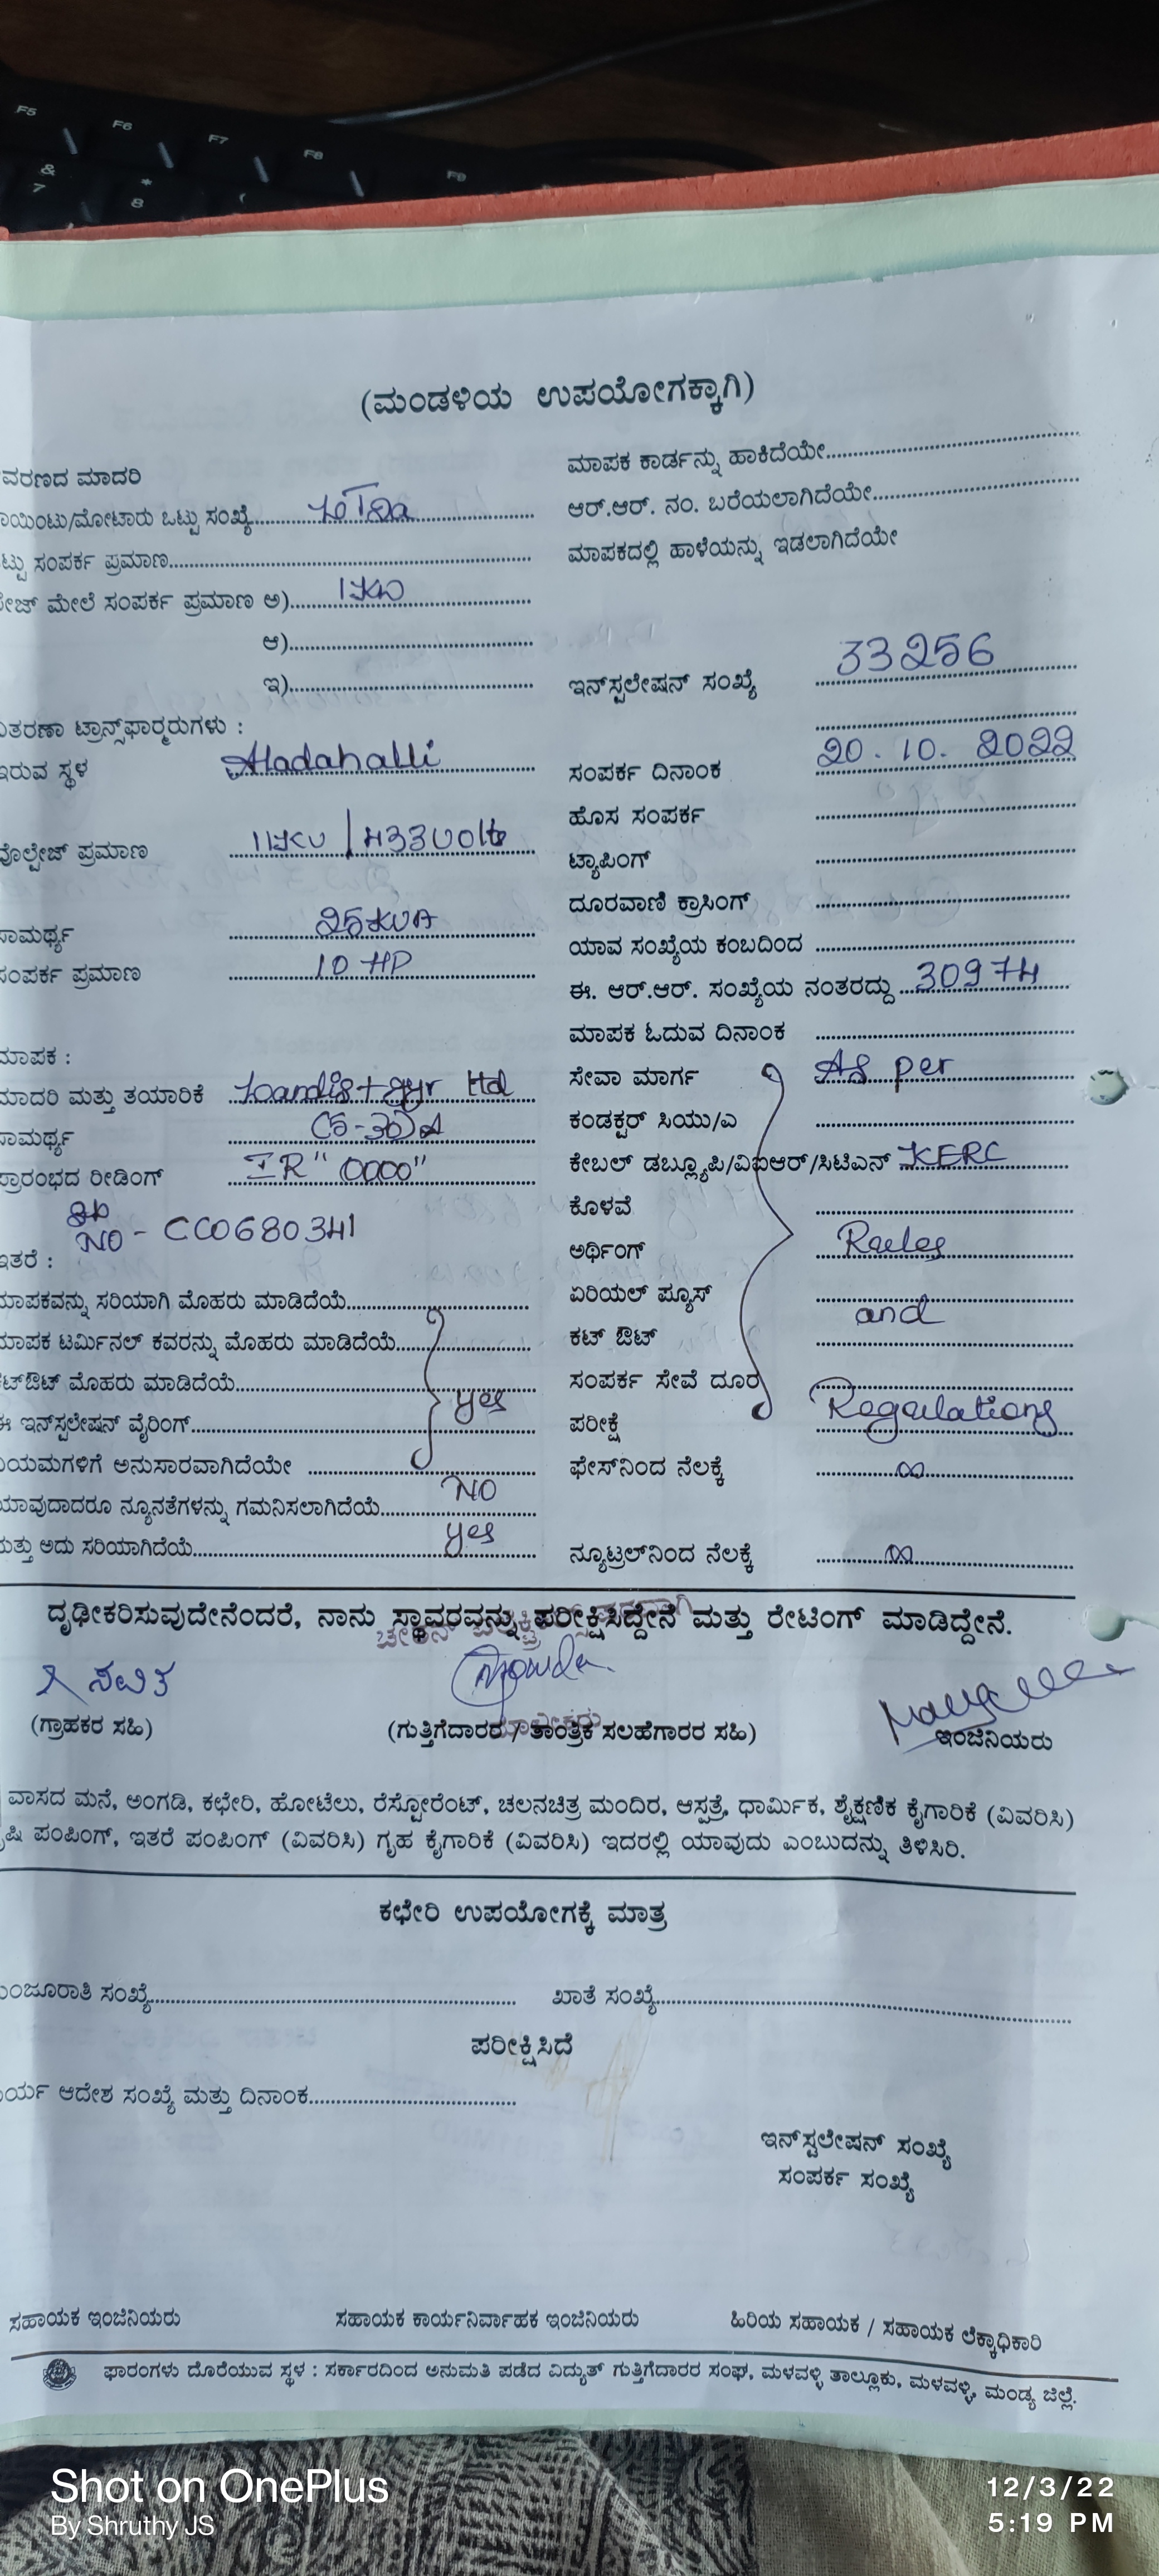 F5
F6
F7
F8
F9
&
7
*
8
(ಮಂಡಳಿಯ ಉಪಯೋಗಕ್ಕಾಗಿ)
ವರಣದ ಮಾದರಿ
ಾಯಿಂಟು/ಮೋಟಾರು ಒಟ್ಟು ಸಂಖ್ಯೆ
ಟ್ಟು ಸಂಪರ್ಕ ಪ್ರಮಾಣ
ೇಜ್ ಮೇಲೆ ಸಂಪರ್ಕ ಪ್ರಮಾಣ ಅ) 1KW
ಆ)
ಇ)
ಿತರಣಾ ಟ್ರಾನ್ಸ್‌ಫಾರ್ಮರುಗಳು :
ಇರುವ ಸ್ಥಳ Aladahalli
ವೊಲ್ಟೇಜ್ ಪ್ರಮಾಣ 11KV / 433 Volts
ಸಾಮರ್ಥ್ಯ 25 KVA
ಸಂಪರ್ಕ ಪ್ರಮಾಣ 10 HP
ಮಾಪಕ :
ಮಾದರಿ ಮತ್ತು ತಯಾರಿಕೆ Landis + gyr Ltd
ಸಾಮರ್ಥ್ಯ (5-30)A
ಪ್ರಾರಂಭದ ರೀಡಿಂಗ್ IR "0000"
NO - CC0680341
ಇತರೆ :
ಮಾಪಕವನ್ನು ಸರಿಯಾಗಿ ಮೊಹರು ಮಾಡಿದೆಯೆ
ಮಾಪಕ ಟರ್ಮಿನಲ್ ಕವರನ್ನು ಮೊಹರು ಮಾಡಿದೆಯೆ
ಟ್‌ಔಟ್ ಮೊಹರು ಮಾಡಿದೆಯೆ yes
ಈ ಇನ್‌ಸ್ಪಲೇಷನ್ ವೈರಿಂಗ್
ಿಯಮಗಳಿಗೆ ಅನುಸಾರವಾಗಿದೆಯೇ
ಯಾವುದಾದರೂ ನ್ಯೂನತೆಗಳನ್ನು ಗಮನಿಸಲಾಗಿದೆಯೆ NO
ಮತ್ತು ಅದು ಸರಿಯಾಗಿದೆಯೆ yes
ಮಾಪಕ ಕಾರ್ಡನ್ನು ಹಾಕಿದೆಯೇ
ಆರ್.ಆರ್. ನಂ. ಬರೆಯಲಾಗಿದೆಯೇ
ಮಾಪಕದಲ್ಲಿ ಹಾಳೆಯನ್ನು ಇಡಲಾಗಿದೆಯೇ
ಇನ್‌ಸ್ಪಲೇಷನ್ ಸಂಖ್ಯೆ 33256
ಸಂಪರ್ಕ ದಿನಾಂಕ 20.10.2022
ಹೊಸ ಸಂಪರ್ಕ
ಟ್ಯಾಪಿಂಗ್
ದೂರವಾಣಿ ಕ್ರಾಸಿಂಗ್
ಯಾವ ಸಂಖ್ಯೆಯ ಕಂಬದಿಂದ
ಈ. ಆರ್.ಆರ್. ಸಂಖ್ಯೆಯ ನಂತರದ್ದು 30974
ಮಾಪಕ ಓದುವ ದಿನಾಂಕ
ಸೇವಾ ಮಾರ್ಗ As per
ಕಂಡಕ್ಟರ್ ಸಿಯು/ಎ
ಕೇಬಲ್ ಡಬ್ಲ್ಯೂಪಿ/ವಿಐಆರ್/ಸಿಟಿಎನ್ KERC
ಕೊಳವೆ
ಅರ್ಥಿಂಗ್ Rules
ಏರಿಯಲ್ ಪ್ಯೂಸ್
ಕಟ್ ಔಟ್ and
ಸಂಪರ್ಕ ಸೇವೆ ದೂರ
ಪರೀಕ್ಷೆ Regulations
ಫೇಸ್‌ನಿಂದ ನೆಲಕ್ಕೆ ∞
ನ್ಯೂಟ್ರಲ್‌ನಿಂದ ನೆಲಕ್ಕೆ ∞
ದೃಢೀಕರಿಸುವುದೇನೆಂದರೆ, ನಾನು ಸ್ಥಾವರವನ್ನು ಪರೀಕ್ಷಿಸಿದ್ದೇನೆ ಮತ್ತು ರೇಟಿಂಗ್ ಮಾಡಿದ್ದೇನೆ.
(ಗ್ರಾಹಕರ ಸಹಿ) (ಗುತ್ತಿಗೆದಾರರ / ತಾಂತ್ರಿಕ ಸಲಹೆಗಾರರ ಸಹಿ) ಇಂಜಿನಿಯರು
ವಾಸದ ಮನೆ, ಅಂಗಡಿ, ಕಛೇರಿ, ಹೋಟೆಲು, ರೆಸ್ಟೋರೆಂಟ್, ಚಲನಚಿತ್ರ ಮಂದಿರ, ಆಸ್ಪತ್ರೆ, ಧಾರ್ಮಿಕ, ಶೈಕ್ಷಣಿಕ ಕೈಗಾರಿಕೆ (ವಿವರಿಸಿ)
ೃಷಿ ಪಂಪಿಂಗ್, ಇತರೆ ಪಂಪಿಂಗ್ (ವಿವರಿಸಿ) ಗೃಹ ಕೈಗಾರಿಕೆ (ವಿವರಿಸಿ) ಇದರಲ್ಲಿ ಯಾವುದು ಎಂಬುದನ್ನು ತಿಳಿಸಿರಿ.
ಕಛೇರಿ ಉಪಯೋಗಕ್ಕೆ ಮಾತ್ರ
ಮಂಜೂರಾತಿ ಸಂಖ್ಯೆ ಖಾತೆ ಸಂಖ್ಯೆ
ಪರೀಕ್ಷಿಸಿದೆ
ರ್ಯ ಆದೇಶ ಸಂಖ್ಯೆ ಮತ್ತು ದಿನಾಂಕ
ಇನ್‌ಸ್ಟಲೇಷನ್ ಸಂಖ್ಯೆ
ಸಂಪರ್ಕ ಸಂಖ್ಯೆ
ಸಹಾಯಕ ಇಂಜಿನಿಯರು ಸಹಾಯಕ ಕಾರ್ಯನಿರ್ವಾಹಕ ಇಂಜಿನಿಯರು ಹಿರಿಯ ಸಹಾಯಕ / ಸಹಾಯಕ ಲೆಕ್ಕಾಧಿಕಾರಿ
ಫಾರಂಗಳು ದೊರೆಯುವ ಸ್ಥಳ : ಸರ್ಕಾರದಿಂದ ಅನುಮತಿ ಪಡೆದ ವಿದ್ಯುತ್ ಗುತ್ತಿಗೆದಾರರ ಸಂಘ, ಮಳವಳ್ಳಿ ತಾಲ್ಲೂಕು, ಮಳವಳ್ಳಿ, ಮಂಡ್ಯ ಜಿಲ್ಲೆ.
Shot on OnePlus
By Shruthy JS
12/3/22
5:19 PM